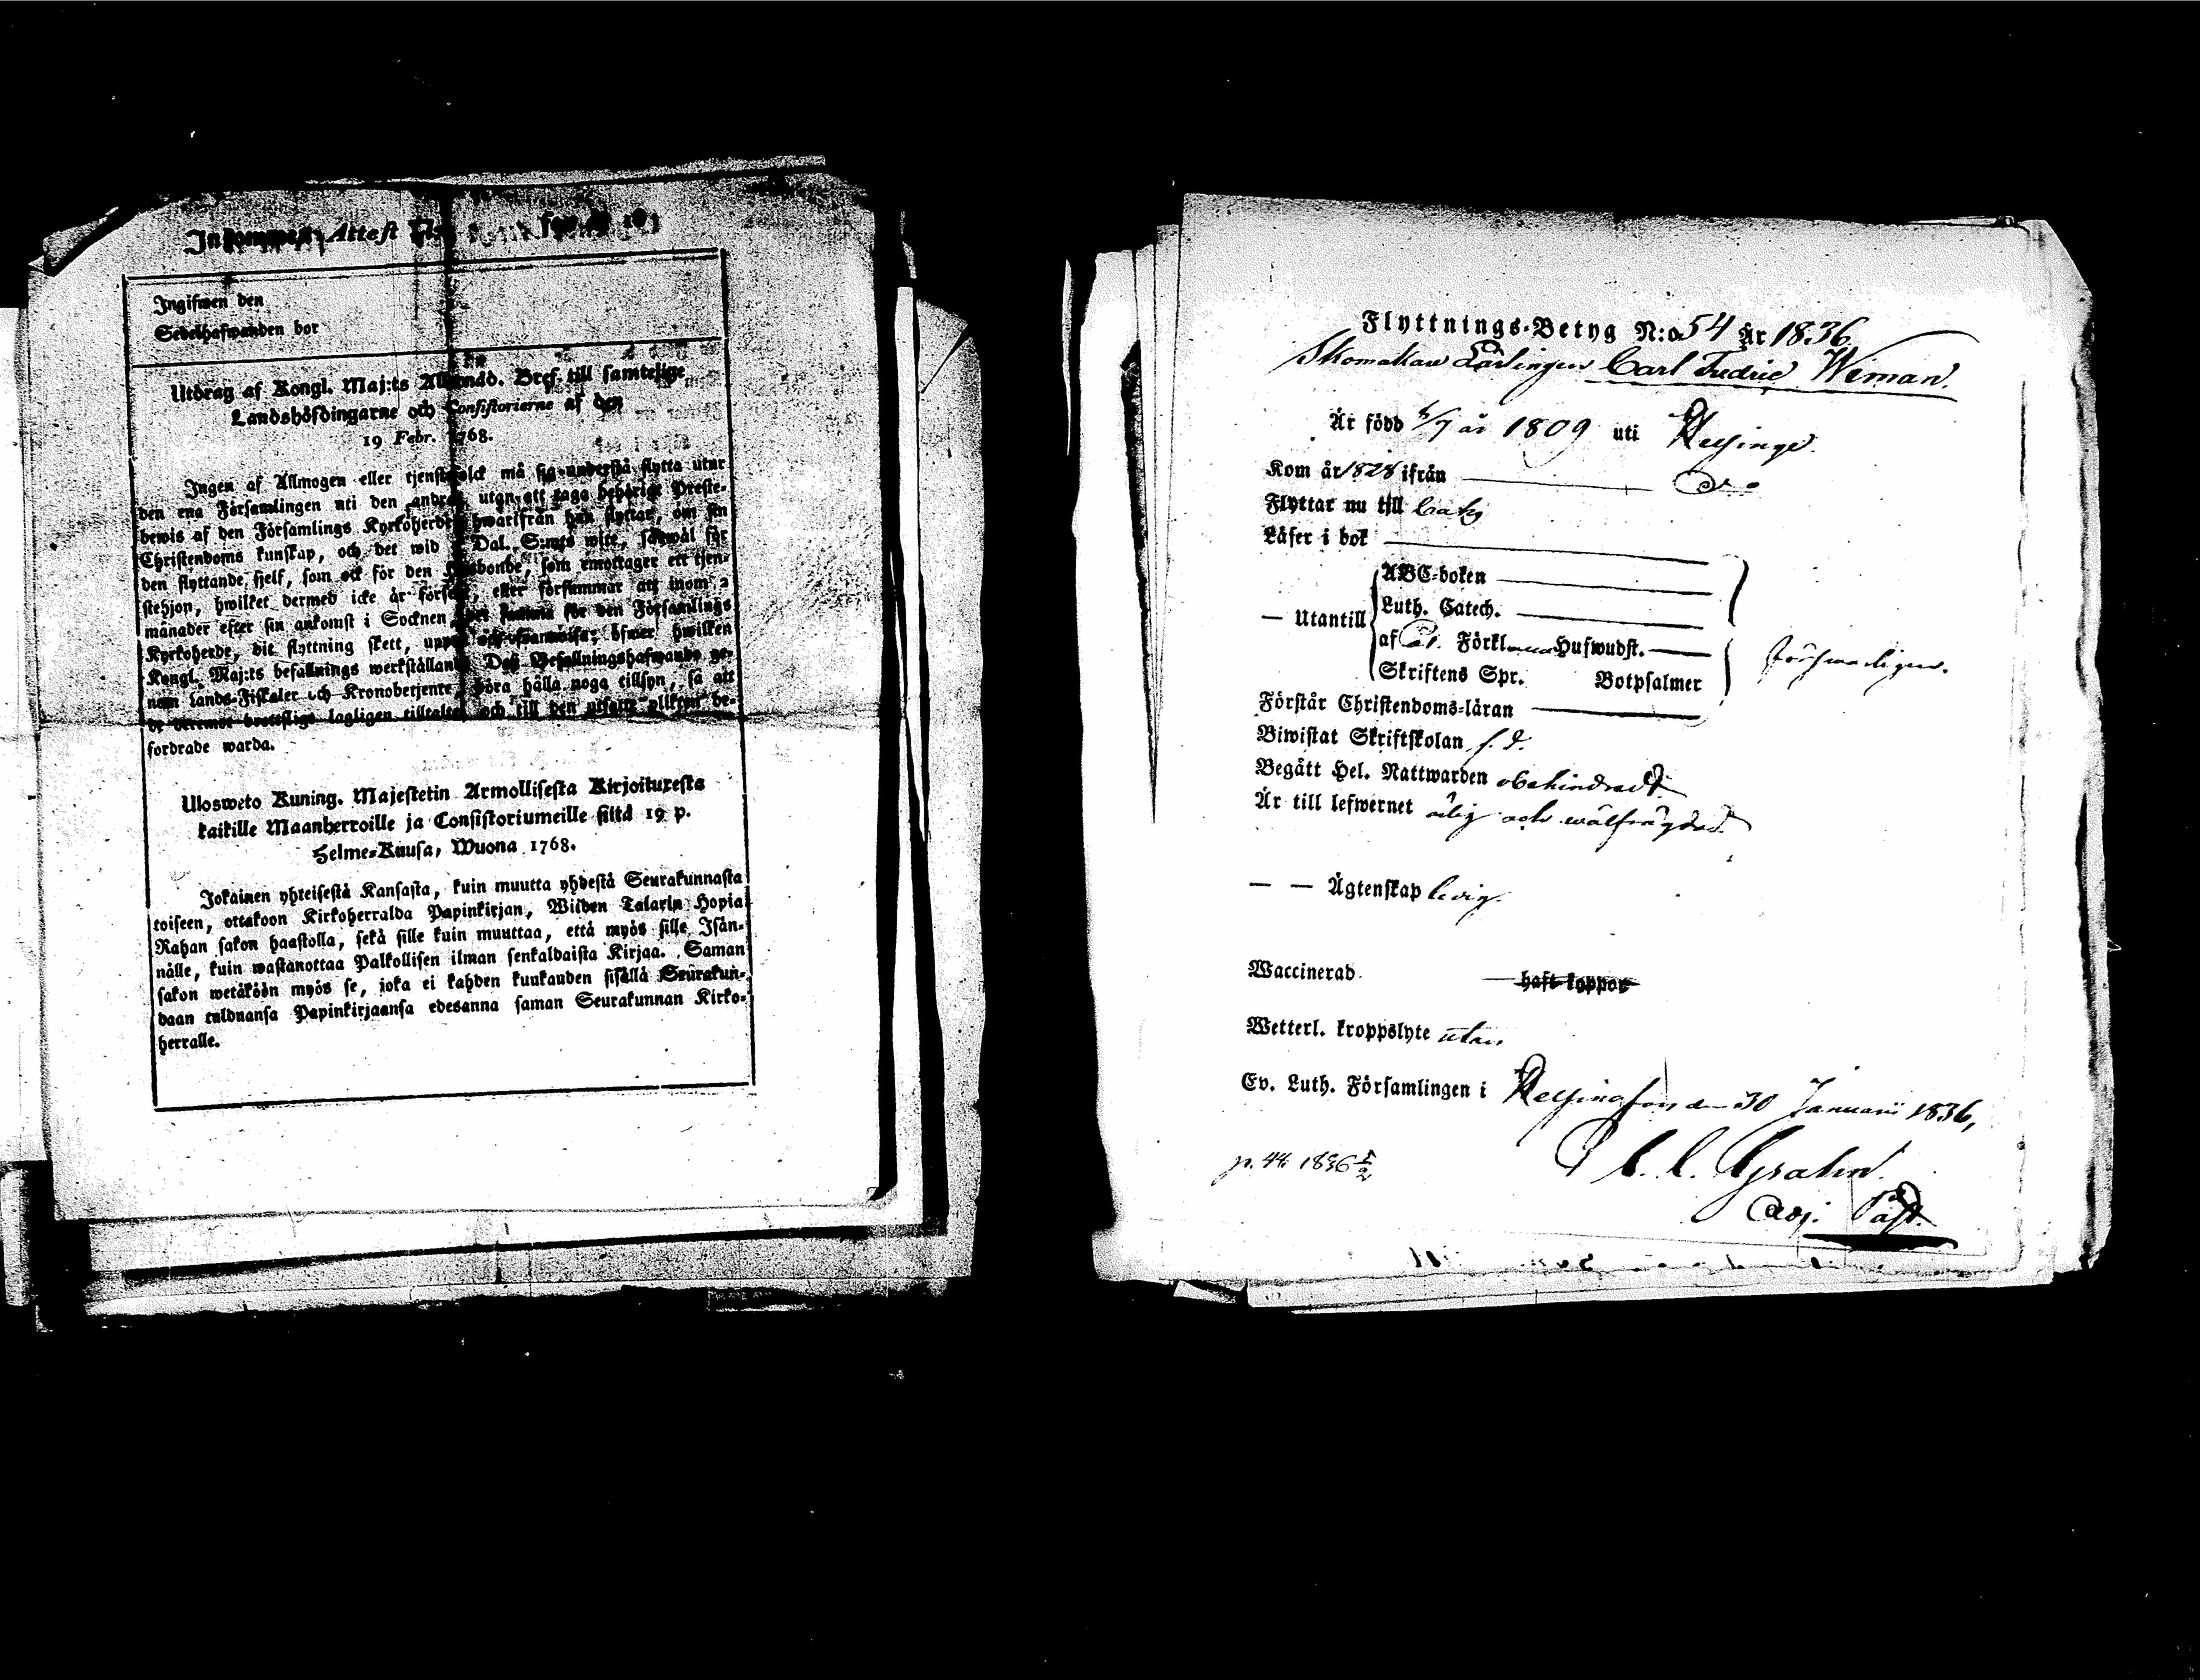 Attest
Ingifwen den
Sedelhafwanden bor
Utdrag af Kongl. Maj:ts Allernåd. Bref till samtelige
Landshöfdingarne och Consistorierne af den
19 Febr. 1768.
Ingen af Allmogen eller tjenstefolck må sig understå flytta utur
den ena Församlingen uti den andra, utan att taga behörigt Preste-
bewis af den Församlings Kyrkoherde hwarifrån han flyttar, om sin
Christendoms kunskap, och det wid Dal. S:mts wite, såwäl för
den flyttande sjelf, som ock för den husbonde, som emottager ett tjen-
stehjon, hwilket dermed icke är försedt, eller försummar att inom 2
månader efter sin ankomst i Socknen det samma för den Församlings
Kyrkoherde, dit flyttning skett, uppte och framwisa; öfwer hwilken
Kongl. Maj:ts befallnings werkställande Dess Befallningshafwande ge-
nom Lands-Fiskaler och Kronobetjente, böra hålla noga tillsyn, så att
de deremot brottslige lagligen tilltalte och till den utsatte plikten be-
fordrade warda.
Ulosweto Kuning. Majestetin Armollisesta Kirjoituresta
kaikille Maanherroille ja Consistoriumeille siitä 19 p.
Helme-Kuusa, Wuona 1768.
Jokainen yhteisestä Kansasta, kuin muutta yhdestä Seurakunnasta
toiseen, ottakoon Kirkoherralda Papinkirjan, Wiiden Talarin Hopia
Rahan sakon haastolla, sekä sille kuin muuttaa, että myös sille Isän-
nälle, kuin wastanottaa Palkollisen ilman senkaldaista Kirjaa. Saman
sakon wetäköön myös se, joka ei kahden kuukauden sisällä Seurakun-
daan tulduansa Papinkirjaansa edesanna saman Seurakunnan Kirko-
herralle.
Flyttnings-Betyg N:o 54 År 1836
Skomakare Lärlingen Carl Fredric Weman.
Är född 4/7 år 1809 uti Helsinge.
Kom år 1828 ifrån Do
Flyttar nu till
Läser i bok
ABC-boken
Luth. Catech.
— Utantill
af Förkl. Hufwudst.
försvarligen.
Skriftens Spr. Botpsalmer
Förstår Christendoms-läran
Biwistat Skriftskolan f. d.
Begått Hel. Nattwarden obehindrad
Är till lefwernet ärlig och wälfrägdad.
— — Ägtenskap ledig.
Waccinerad haft koppor
Wetterl. kroppslyte utan
Ev. Luth. Församlingen i Helsingfors den 30 Januarii 1836,
p. 44 1836 5/2
C. C. Grahn.
Adj. Past.